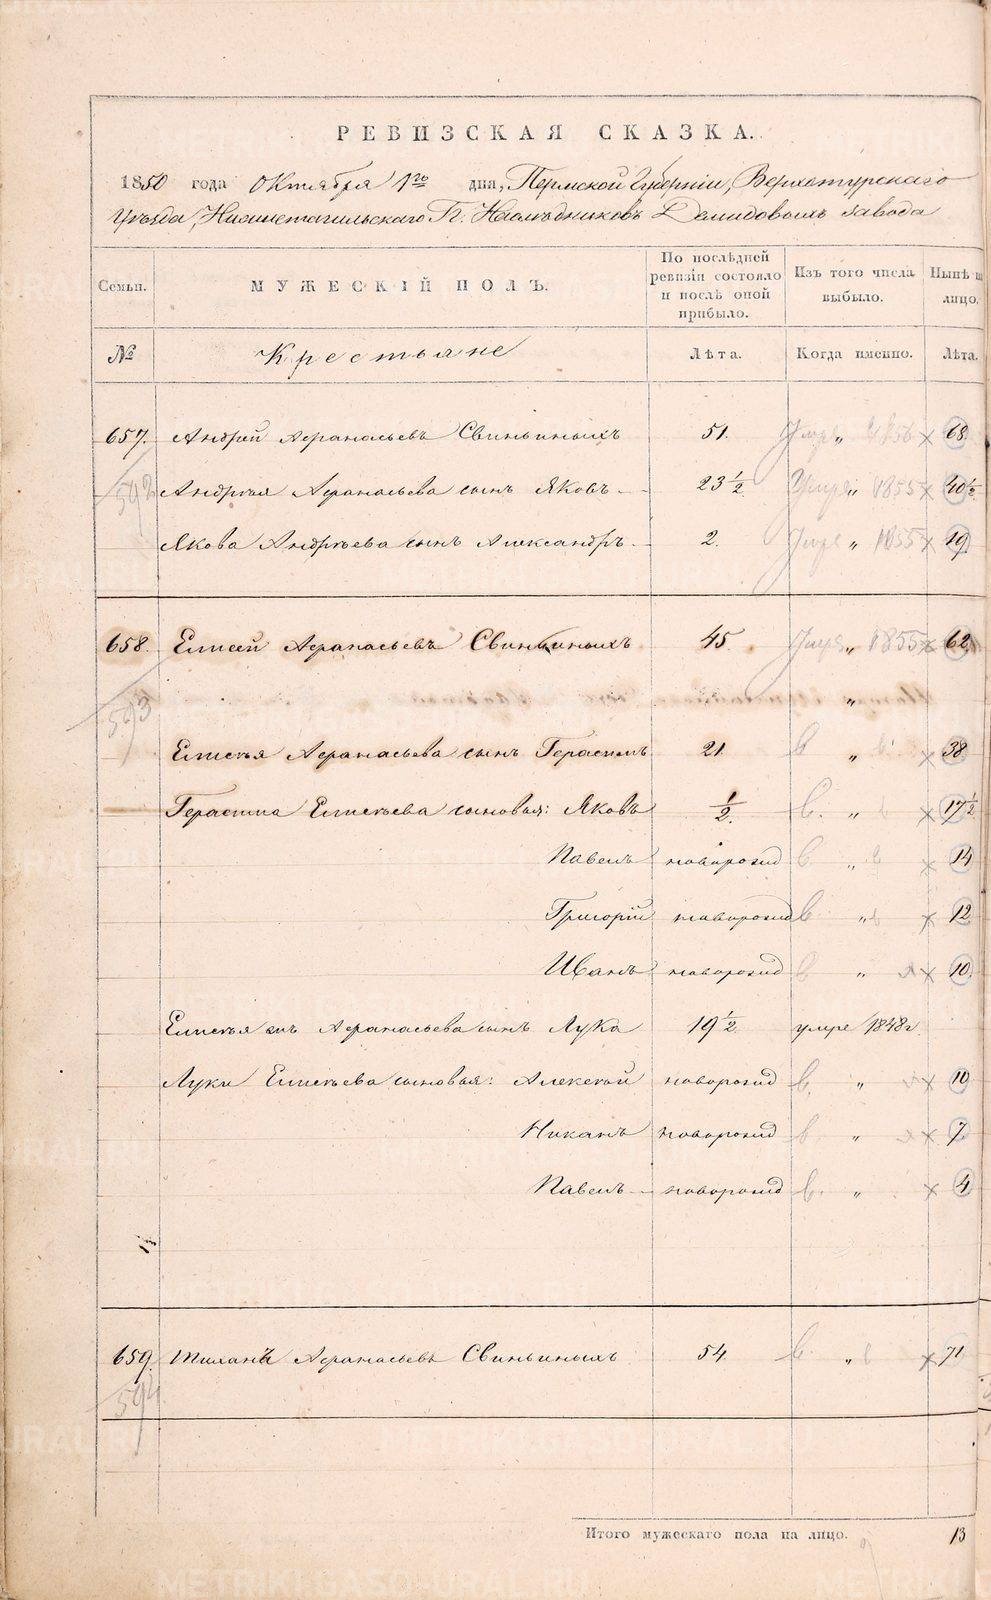 РЕВИЗСКАЯ СКАЗКА.
1850 года Октября 1го дня, Пермской Губернии, Верхотурскаго
Уѣзда, Нижнетагильскаго Гг. Наслѣдниковъ Демидовыхъ завода
Семьи. МУЖЕСКІЙ ПОЛЪ. По послѣдней ревизіи состояло и послѣ оной прибыло. Изъ того числа выбыло. Нынѣ на лицо.
№ Крестьяне Лѣта. Когда именно. Лѣта.
657. Андрей Афанасьевъ Свиньиныхъ 51. Умре „ 1856 × 68
592
Андрея Афанасьева сынъ Яковъ 23 1/2 Умре „ 1855 × 40 1/2
Якова Андреева сынъ Александръ 2. Умре „ 1855 × 19
658. Елисей Афанасьевъ Свиньиныхъ 45 Умре „ 1855 × 62
593 „
Елисея Афанасьева сынъ Герасимъ 21 в „ × 38
Герасима Елисѣева сыновья: Яковъ 1/2 в. „ × 17 1/2
Павелъ новорожд в „ × 14
Григорій новорожд в „ × 12
Иванъ новорожд в „ × 10
Елисея Афанасьева сынъ Лука 19 1/2 умре 1848 г.
Луки Елисѣева сыновья: Алексей новорожд в. „ × 10
Никанъ новорожд в „ × 7
Павелъ новорожд в. „ × 4
659. Тиханъ Афанасьевъ Свиньиныхъ 54 в „ × 71
594
Итого мужескаго пола на лицо. 13
METRIKI.GASO-URAL.RU